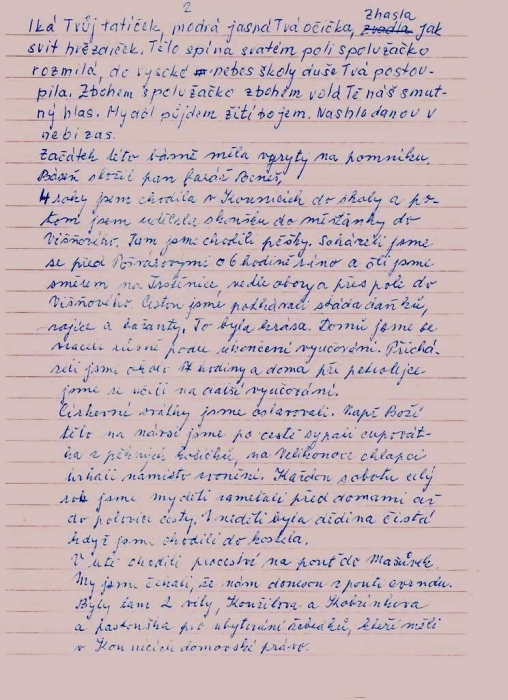 2
lká Tvůj tatíček, modrá jasná Tvá očička, zhasla jak
svit hvězdiček. Tělo spí na svatém poli spolužačko
rozmilá, do vysoké nebes školy duše Tvá postou-
pila. Zbohem spolužačko zbohem volá Tě náš smut-
ný hlas. My dál půjdem žití bojem. Nashledanou v
nebi zas.
Začátek této básně měla vyrytý na pomníku.
Báseň složil pan farář Beneš.
4 roky jsem chodila v Kounicích do školy a po-
tom jsem udělala zkoušku do měšťánky do
Višňového. Tam jsme chodili pěšky. Scházeli jsme
se před Pošvářovými o 6 hodině ráno a šli jsme
směrem na Trstěnice, vedle obory a přes pole do
Višňového. Cestou jsme potkávali stáda daňků,
zajíce a bažanty. To byla krása. Domů jsme se
vraceli různě podle ukončení vyučování. Přichá-
zeli jsme okolo hodiny a doma při petrolejce
jsme se učili na další vyučování.
Církevní svátky jsme oslavovali. Např Boží
tělo na návsi jsme po cestě sypali
z pěkných košíčků, na Velikonoce chlapci
hrkali namísto zvonění. Každou sobotu celý
rok jsme my děti zametali před domami až
do polovice cesty. V neděli byla dědina čistá
když jsme chodili do kostela.
V létě chodili procesství na pouť do Mašůvek.
My jsme čekali, že nám donesou z pouti
Byly tam 2 vily, Koužilova a Kobrínkova
a pastouška pro ubytování žebráků, kteří měli
v Kounicích domovské právo.